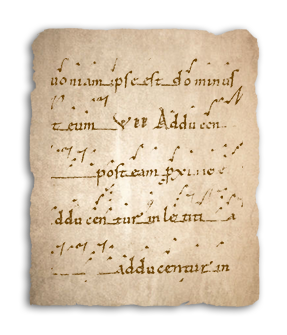 uoniam ipse est dominus
teum Adducen
posteam
dducentur in letiti a
adducentur in